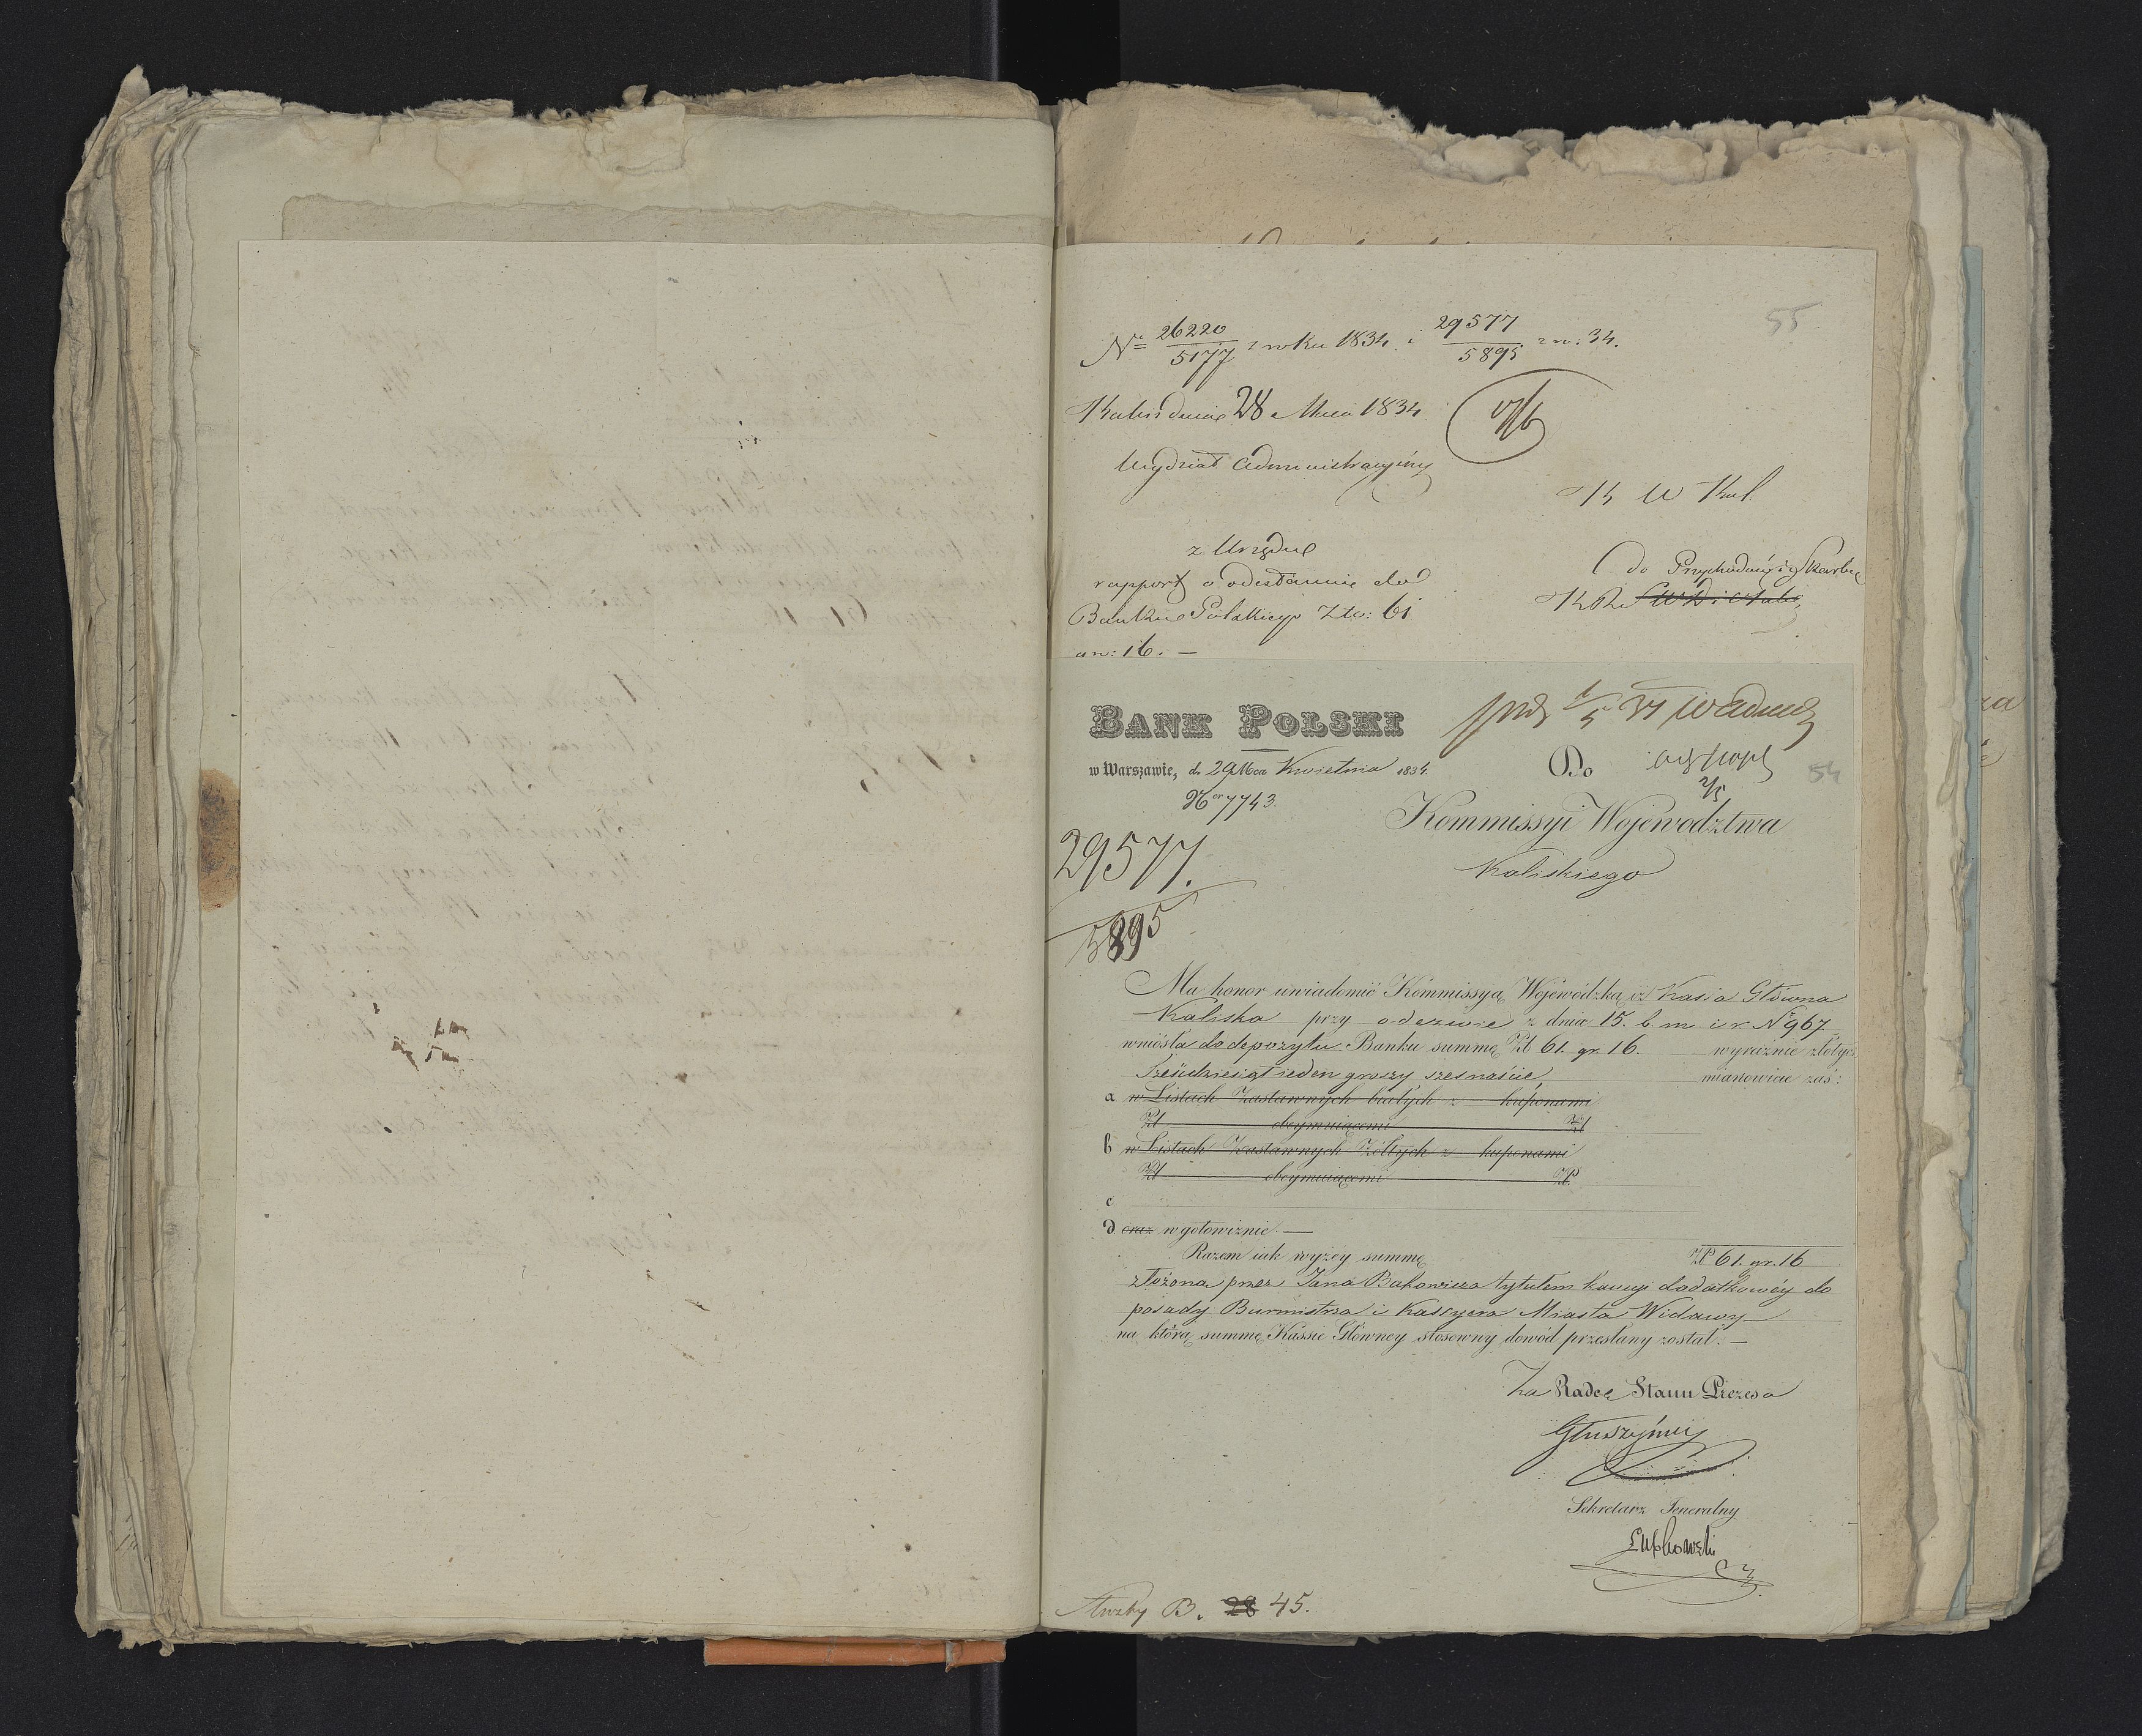 55
No 26220/5177 z roku 1834 i 29577/5895 z r. 34.
Kalisz dnia 28 Maia 1834
Wydział Administracyiny
K W Kal
z Urzędu
rapport o odesłanie do
Banku Polskiego Złto: 61
gr: 16. —
Do Przychodów i Skarbu
K R
BANK POLSKI
w Warszawie, d. 29 Mca Kwietnia 1834.
Nor 7743.
Do
54
2/5
Kommissyi Województwa
Kaliskiego
29577.
5895
Ma honor uwiadomić Kommissyą Wojewódzką iż Kassa Główna
Kaliska przy odezwie z dnia 15. b. m. i r. No 967.
wniosła do depozytu Banku summę Złt 61. gr. 16. wyraźnie złotych
Sześćdziesiąt ieden groszy szesnaście mianowicie zaś:
a w Listach Zastawnych białych z kuponami
Zł obeymuiącemi Zł
b w Listach Zastawnych Żółtych z kuponami
Zł obeymuiącemi Zł
c
d oraz w gotowiźnie. —
Razem iak wyżey summę Zł 61. gr. 16
złożoną przez Jana Bakowicza tytułem kaucyi dodatkowéy do
posady Burmistrza i Kassyera Miasta Widawy
na którą summę Kassie Główney stosowny dowód przesłany został. —
Za Radcę Stanu Prezesa
Głuszyński
Sekretarz Jeneralny
Łubkowski
B. 28 45.